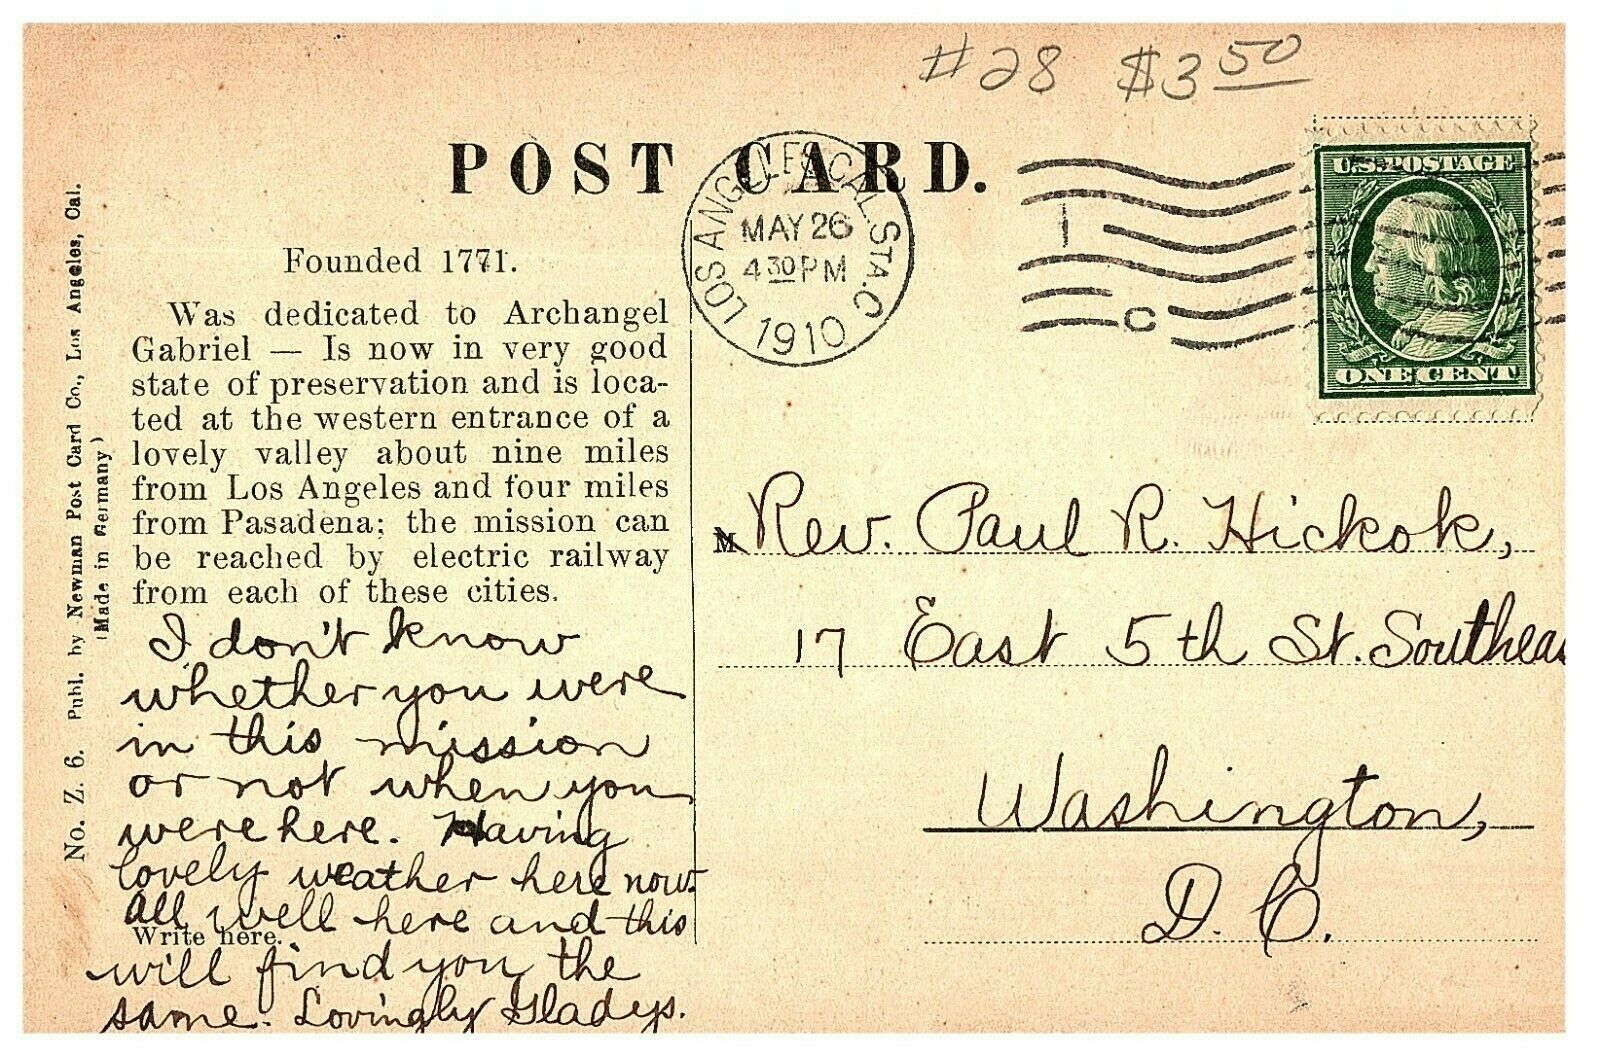 #28 $3 50
POST CARD.
LOS ANGELES, CAL. STA. C
MAY 26
4 30 PM
1910
1
C
U.S. POSTAGE
ONE CENT
Founded 1771.
Was dedicated to Archangel
Gabriel — Is now in very good
state of preservation and is loca-
ted at the western entrance of a
lovely valley about nine miles
from Los Angeles and four miles
from Pasadena; the mission can
be reached by electric railway
from each of these cities.
I don't know
whether you were
in this mission
or not when you
were here. Having
lovely weather here now.
All well here and this
Write here.
will find you the
same. Lovingly Gladys.
No. Z. 6. Publ. by Newman Post Card Co., Los Angeles, Cal.
(Made in Germany)
M Rev. Paul R. Hickok,
17 East 5th St. Southeas
Washington,
D. C.